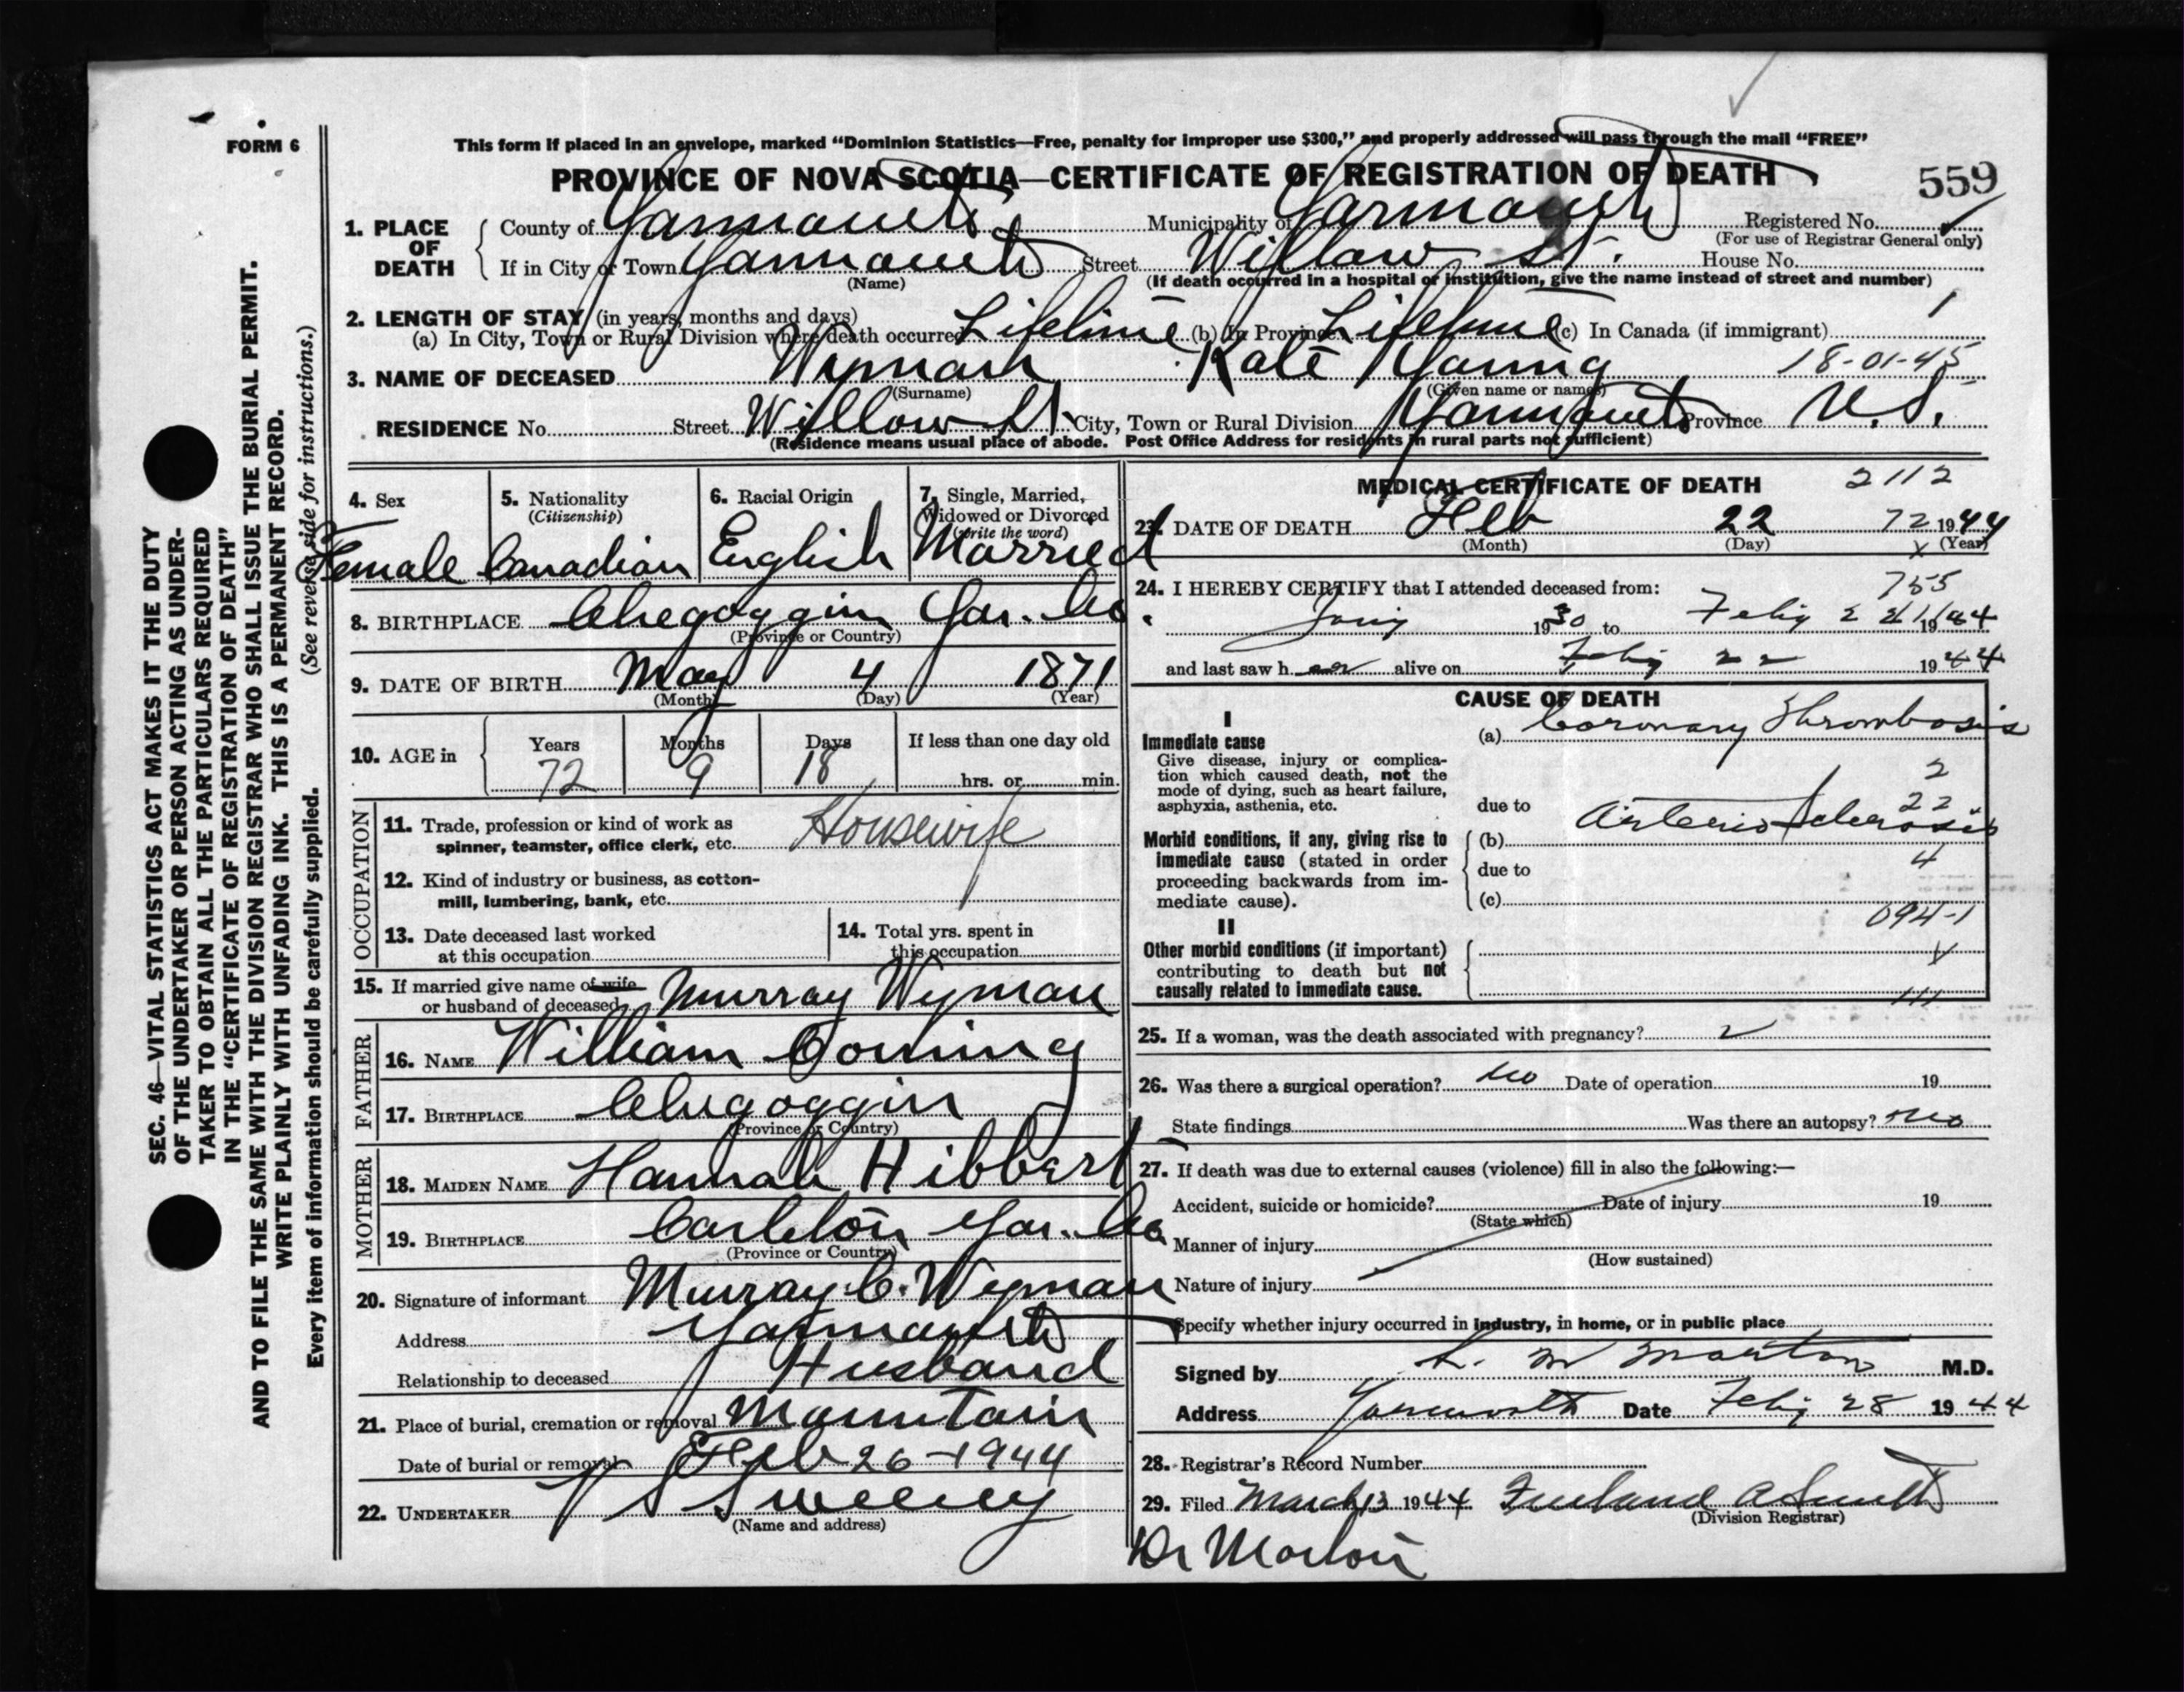 FORM 6
This form if placed in an envelope, marked "Dominion Statistics—Free, penalty for improper use $300," and properly addressed will pass through the mail "FREE"
PROVINCE OF NOVA SCOTIA—CERTIFICATE OF REGISTRATION OF DEATH
559
1. PLACE OF DEATH County of Yarmouth Municipality of Yarmouth Registered No.
(For use of Registrar General only)
If in City or Town Yarmouth Street Willow St. House No.
(Name) (If death occurred in a hospital or institution, give the name instead of street and number)
2. LENGTH OF STAY (in years, months and days)
(a) In City, Town or Rural Division where death occurred Lifetime (b) In Province Lifetime (c) In Canada (if immigrant)
3. NAME OF DECEASED Wyman Kate 18-01-45
(Surname) (Given name or names)
RESIDENCE No. Street Willow St. City, Town or Rural Division Yarmouth Province N.S.
(Residence means usual place of abode. Post Office Address for residents in rural parts not sufficient)
4. Sex Female
5. Nationality (Citizenship) Canadian
6. Racial Origin English
7. Single, Married, Widowed or Divorced (write the word) Married
8. BIRTHPLACE Chegoggin Yar. Co.
(Province or Country)
9. DATE OF BIRTH May 4 1871
(Month) (Day) (Year)
10. AGE in Years 72 Months 9 Days 18 If less than one day old
hrs. or min.
OCCUPATION
11. Trade, profession or kind of work as
spinner, teamster, office clerk, etc. Housewife
12. Kind of industry or business, as cotton-
mill, lumbering, bank, etc.
13. Date deceased last worked
at this occupation
14. Total yrs. spent in
this occupation
15. If married give name of wife
or husband of deceased Murray Wyman
FATHER
16. NAME William Corning
17. BIRTHPLACE Chegoggin
(Province or Country)
MOTHER
18. MAIDEN NAME Hannah Hibbert
19. BIRTHPLACE Carleton Yar. Co
(Province or Country)
20. Signature of informant Murray C. Wyman
Address Yarmouth
Relationship to deceased Husband
21. Place of burial, cremation or removal Mountain
Date of burial or removal Feb 26-1944
22. UNDERTAKER V S Sweeney
(Name and address)
MEDICAL CERTIFICATE OF DEATH 2112
23. DATE OF DEATH Feb 22 72 1944
(Month) (Day) (Year)
24. I HEREBY CERTIFY that I attended deceased from: 755
1930 to 1944
and last saw her alive on Feby 22 1944
CAUSE OF DEATH
I
Immediate cause
Give disease, injury or complica-
tion which caused death, not the
mode of dying, such as heart failure,
asphyxia, asthenia, etc.
(a) Coronary Thrombosis
2
22
due to Arterio Sclerosis
Morbid conditions, if any, giving rise to
immediate cause (stated in order
proceeding backwards from im-
mediate cause).
(b)
4
due to
(c)
094-1
II
Other morbid conditions (if important)
contributing to death but not
causally related to immediate cause.
25. If a woman, was the death associated with pregnancy?
26. Was there a surgical operation? no Date of operation 19
State findings Was there an autopsy? no
27. If death was due to external causes (violence) fill in also the following:—
Accident, suicide or homicide? Date of injury 19
(State which)
Manner of injury
(How sustained)
Nature of injury
Specify whether injury occurred in industry, in home, or in public place
Signed by L. M Morton M.D.
Address Yarmouth Date Feby 28 1944
28. Registrar's Record Number
29. Filed March 13 1944
(Division Registrar)
Dr Morton
SEC. 46—VITAL STATISTICS ACT MAKES IT THE DUTY
OF THE UNDERTAKER OR PERSON ACTING AS UNDER-
TAKER TO OBTAIN ALL THE PARTICULARS REQUIRED
IN THE "CERTIFICATE OF REGISTRATION OF DEATH"
AND TO FILE THE SAME WITH THE DIVISION REGISTRAR WHO SHALL ISSUE THE BURIAL PERMIT.
WRITE PLAINLY WITH UNFADING INK. THIS IS A PERMANENT RECORD.
Every item of information should be carefully supplied. (See reverse side for instructions.)